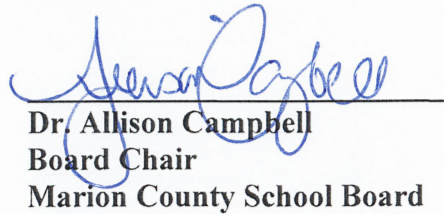 Allison Campbell
Dr. Allison Campbell
Board Chair
Marion County School Board